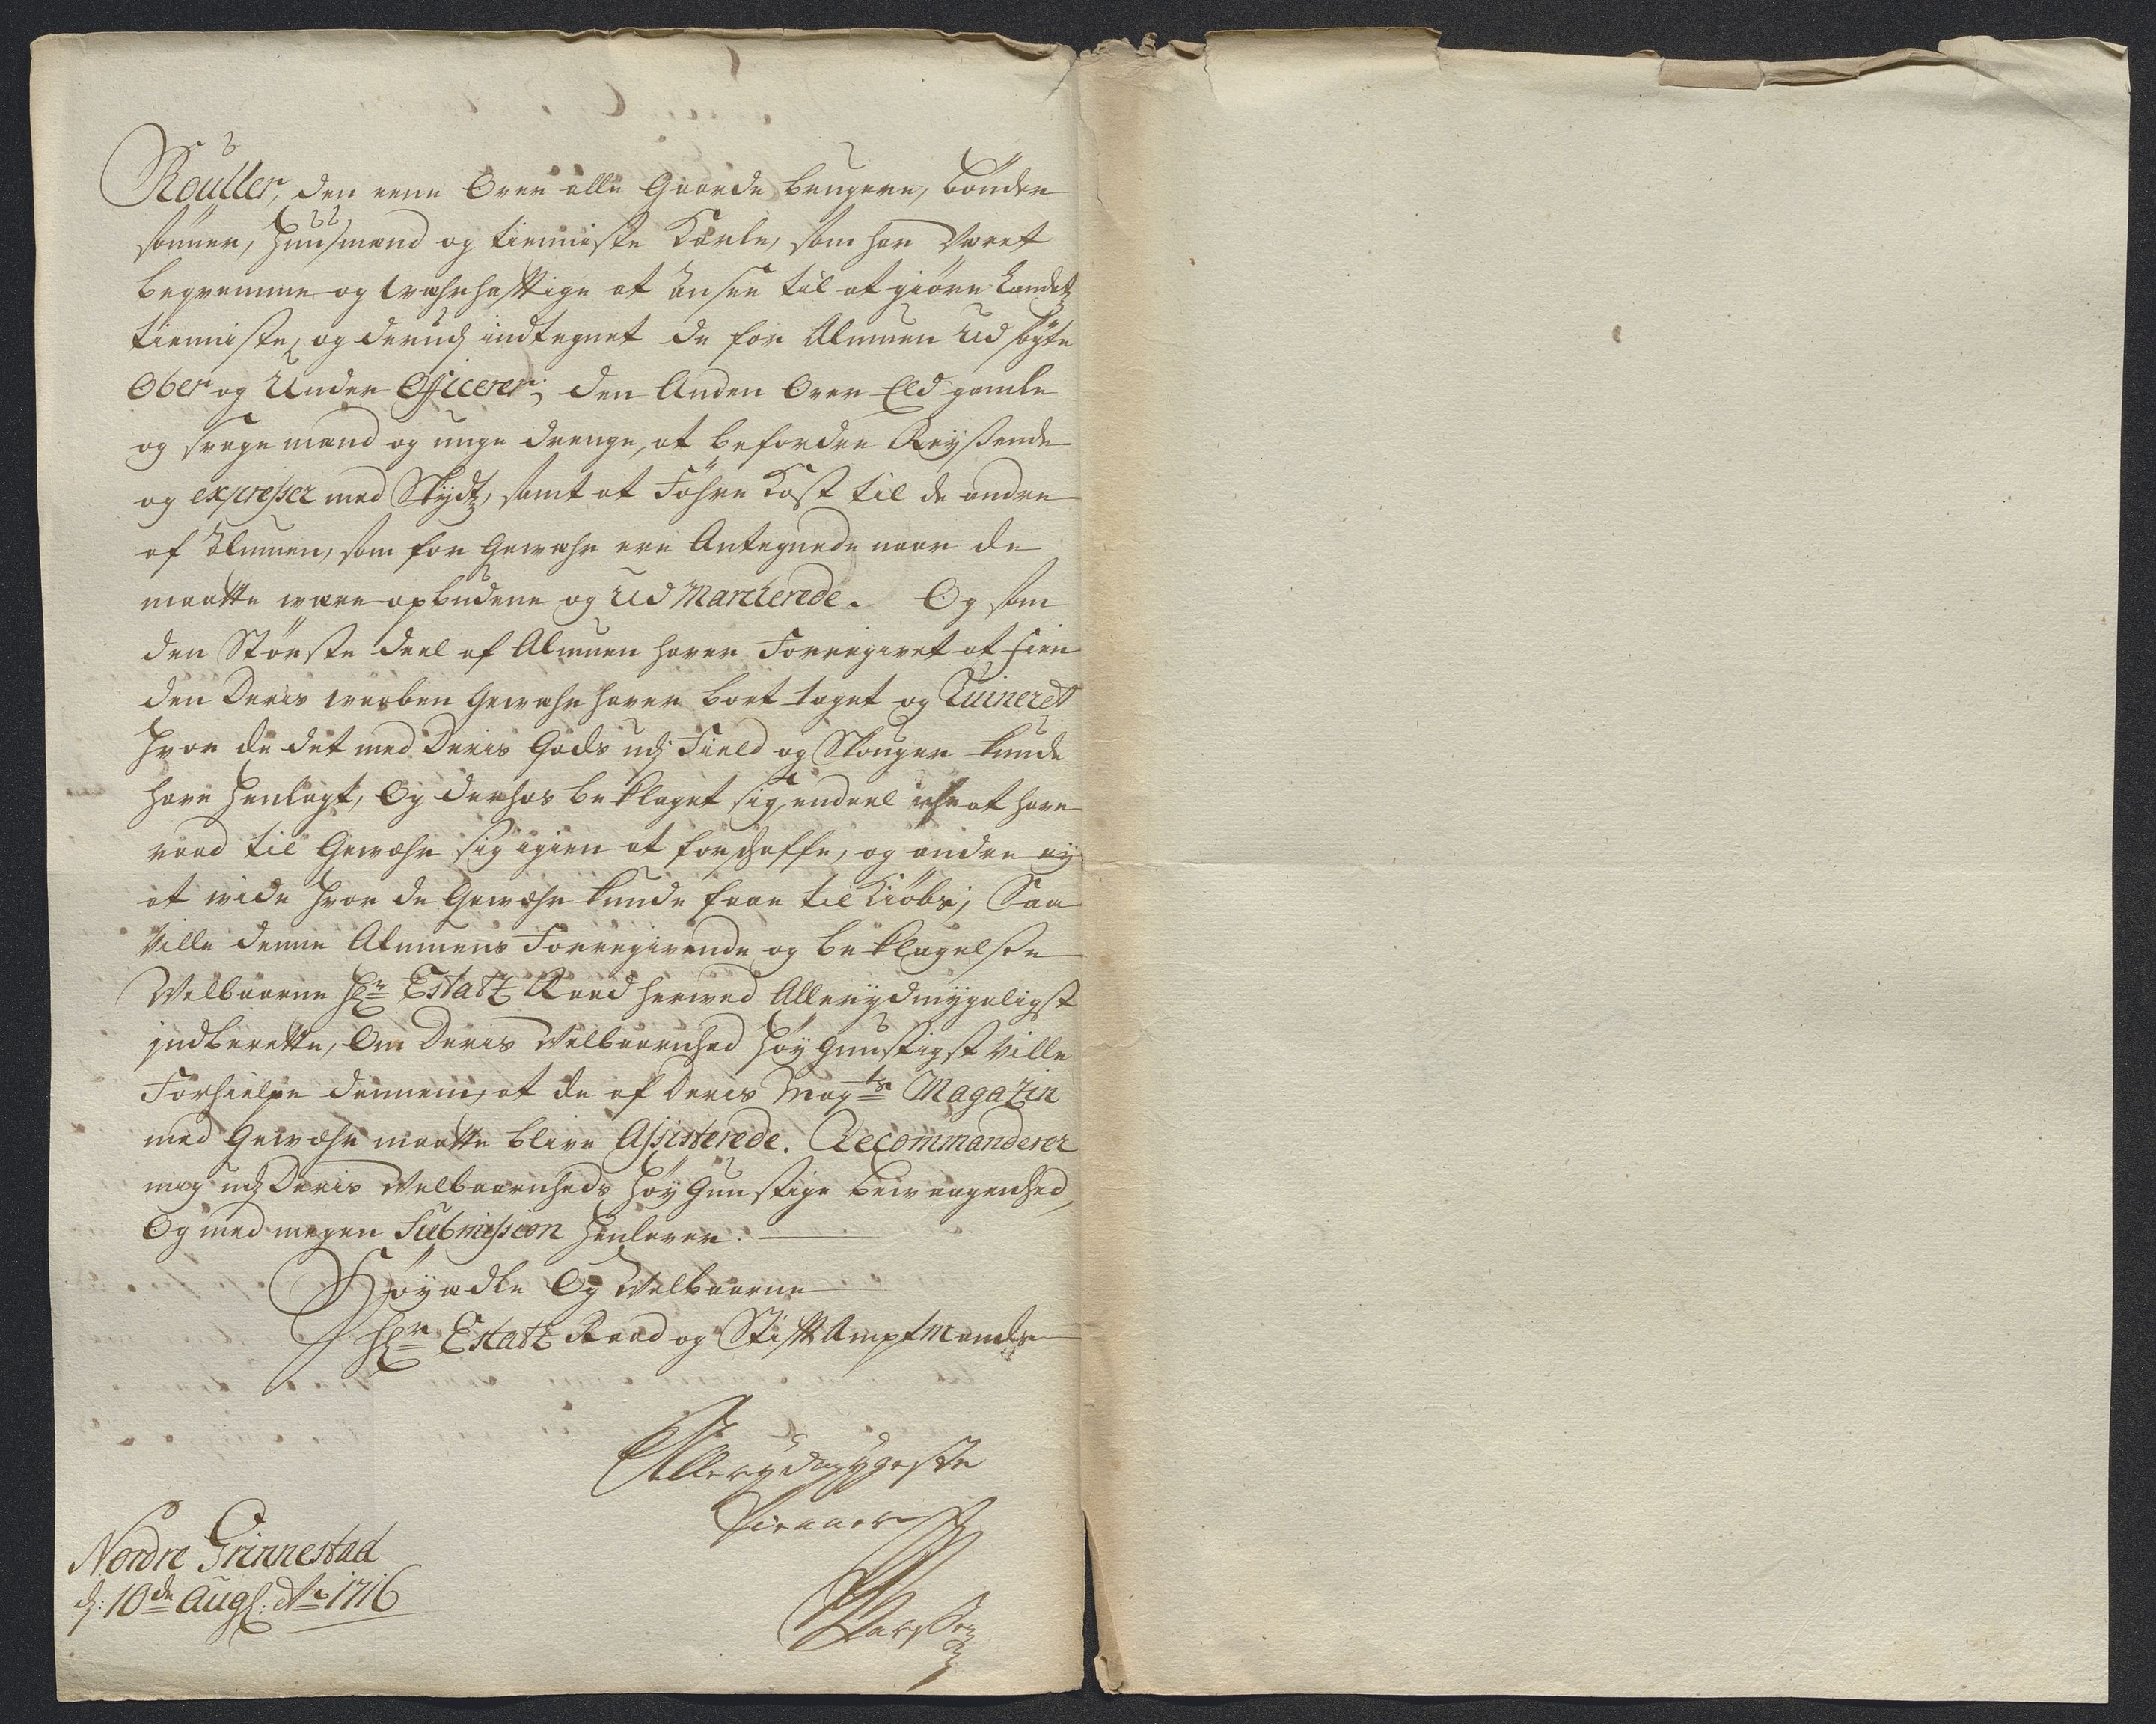 Rouller, den eene Over alle Gaarde brugere, bönder
sönner, Huusmænd og tienniste Karle, som har Været
beqvemme og wæhrhafftige at ansee til at giöre Landetz
tienniste, og derudj indtegnet de for Almuen Udsögte
Ober og Under Officerer; den Anden Over Eld gamle
og svage mænd og unge drenge, at befordre Reyssende
og expresser med Skydtz, samt at Föhre Kost til de andre
af Almuen, som for Gewæhr ere Antegnede naar de
maatte være opbudene og Ud Marcherede. Og som
den Störste deel af Almuen haver Forregivet at Fien
den Deris waaben Gewæhr haver bort taget og Ruineret
Hvor de det med Deris Gods udj Field og Skouger kunde
have Henlagt, Og derhos beklaget sig endeel iche at have
raad til Gewæhr sig igien at forschaffe, og andre ey
at vide Hvor de Gewæhr kunde faae til Kiöbs; Saa
Ville denne Almuens Forregivende og beklagelse
Welbaarne Hr Estatz Raad herved Allerydmygeligst
indberette, Om Deris Velbaarnhed Höy gunstigst Ville
Forhielpe dennem, at de af Deris Mayts Magazin
med Gewæhr maatte blive Assisterede. Recommanderer
mig udj Deris Velbaarnheds Höy Gunstige bewaagenhed,
Og med megen Submission Henlever.
Höyædle Og Velbaarne
Hr Estatz Raad og Stifft Amptmands
Allerydmygeste
tienner
Nordre Grinnestad
d: 10de Aug: Ao 1716